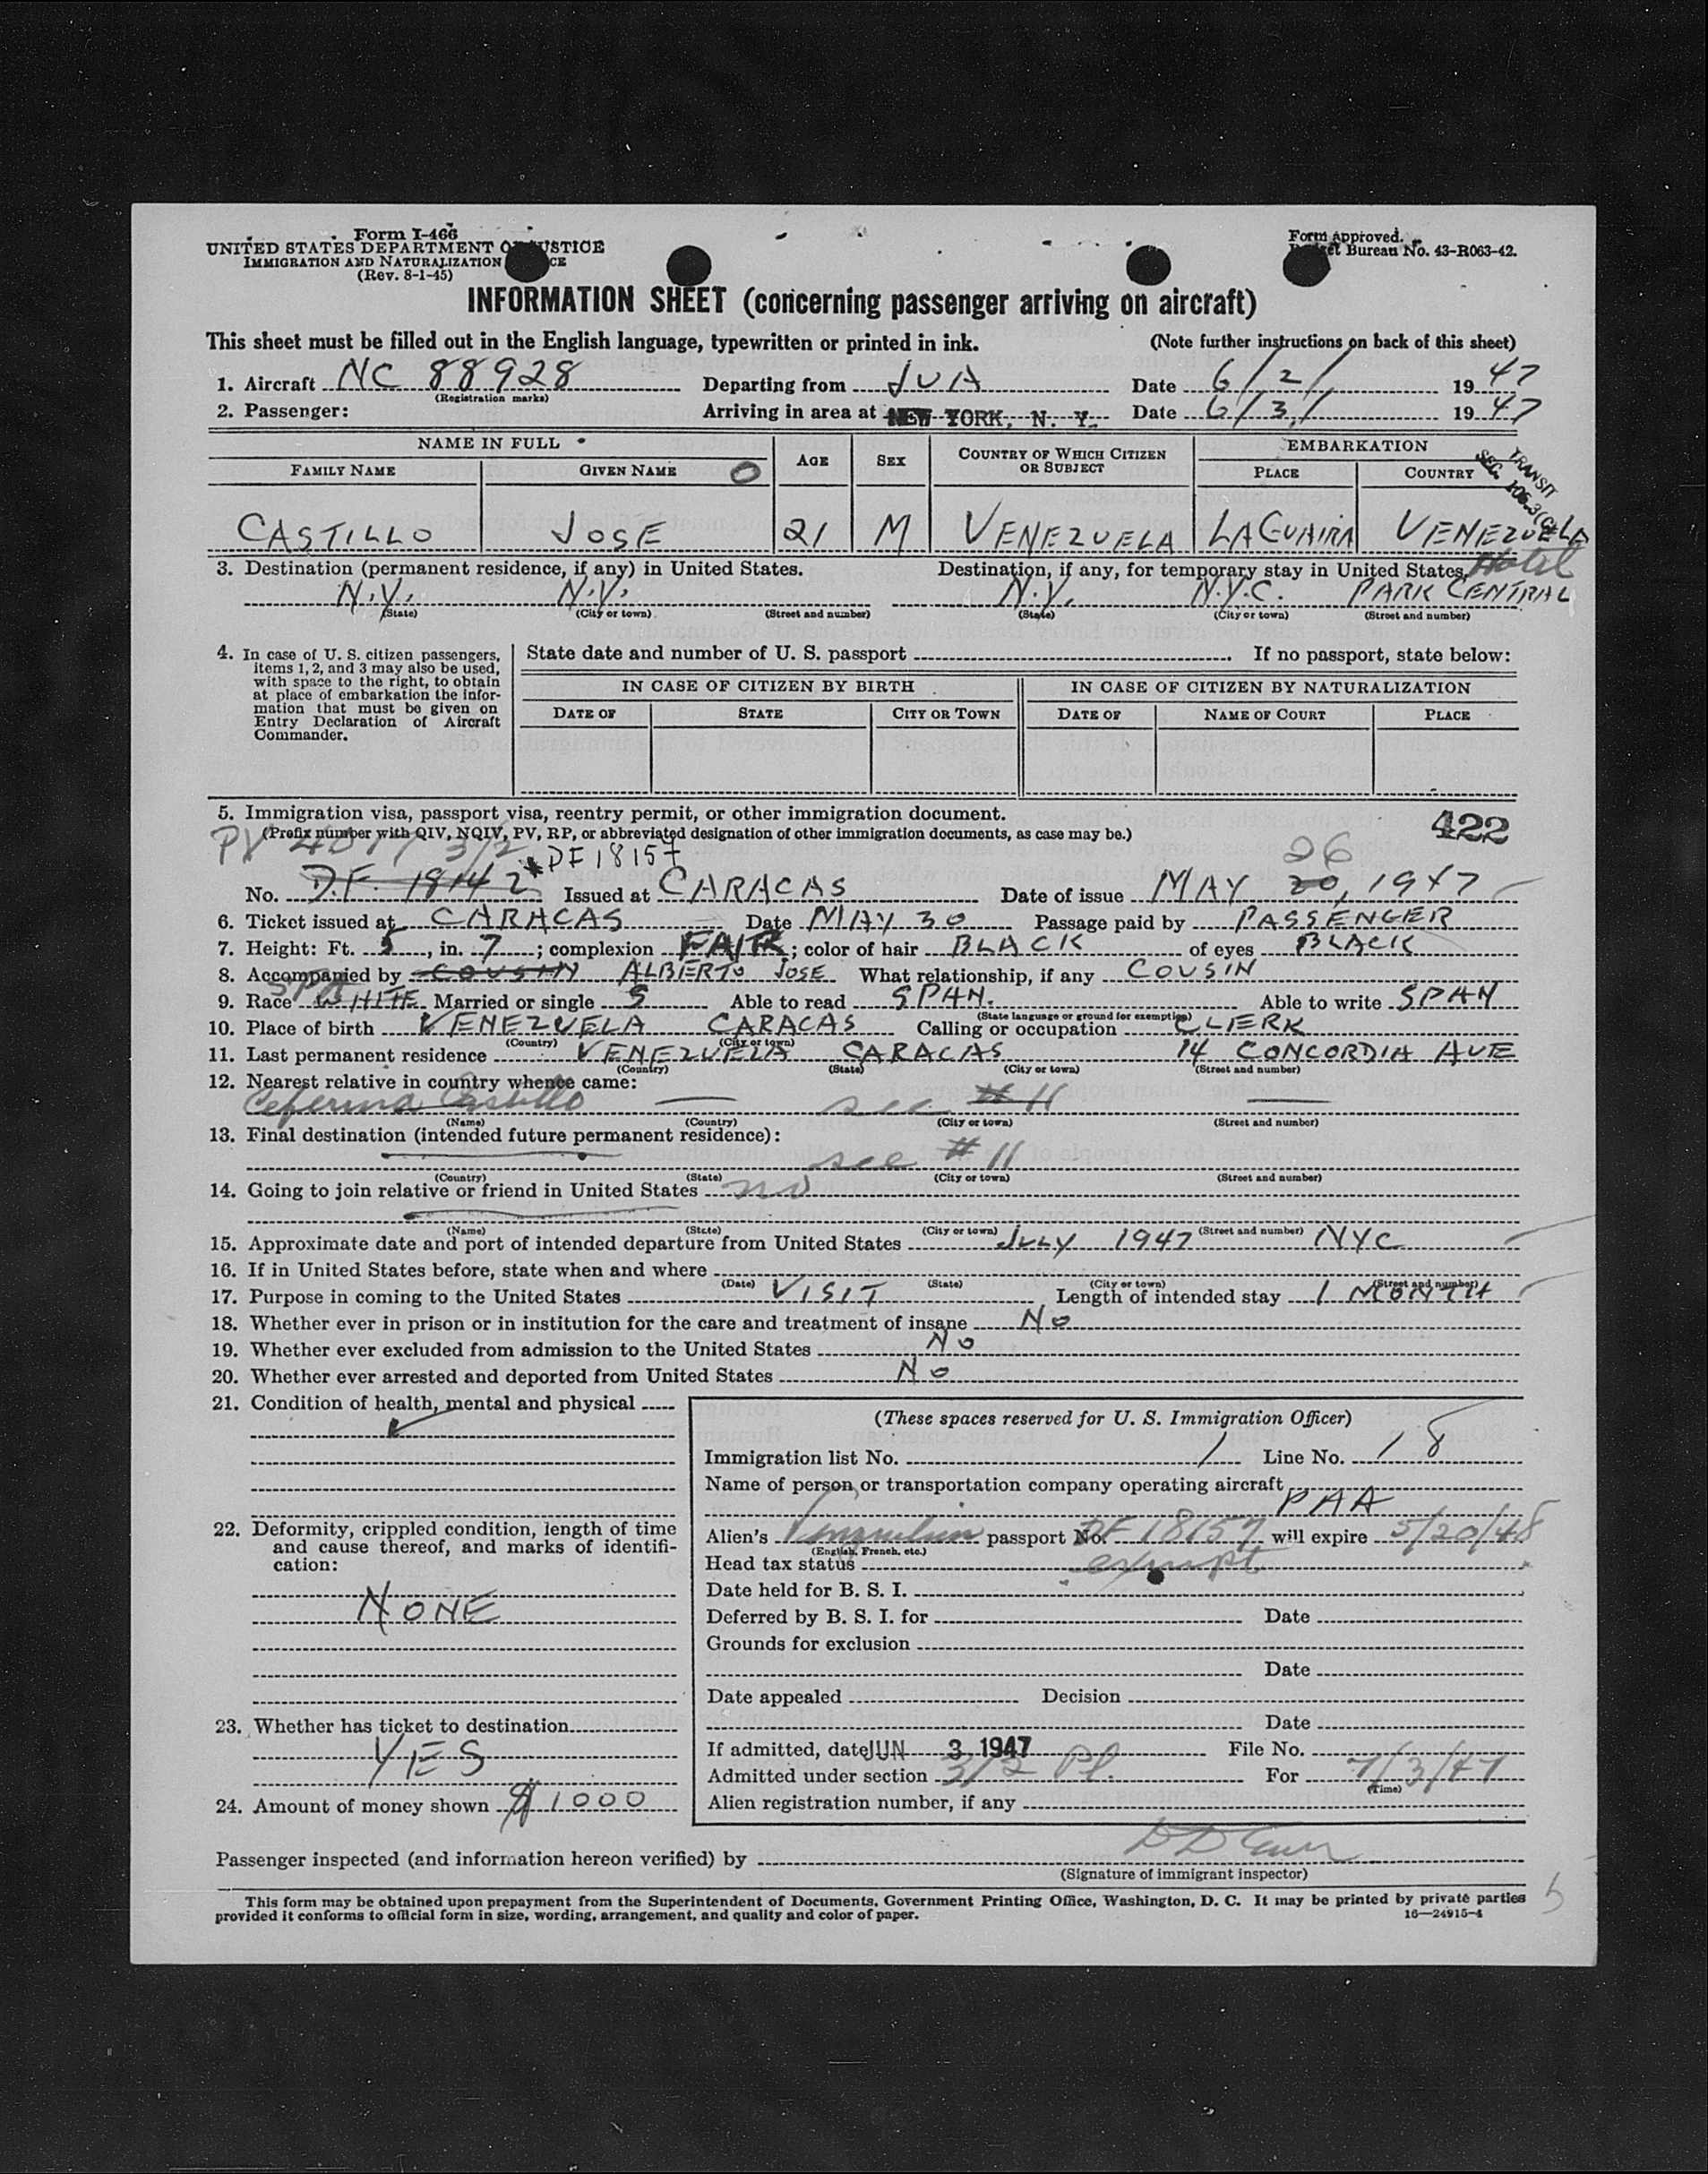 Form I-466
UNITED STATES DEPARTMENT OF JUSTICE
IMMIGRATION AND NATURALIZATION
(Rev. 8-1-45)
Form Approved.
Bureau No. 43-R063-42.
INFORMATION SHEET (concerning passenger arriving on aircraft)
This sheet must be filled out in the English language, typewritten or printed in ink. (Note further instructions on back of this sheet)
1. Aircraft NC 88928 Departing from JUA Date 6/2/ 1947
(Registration marks)
2. Passenger: Arriving in area at NEW YORK, N. Y. Date 6/3/ 1947
NAME IN FULL AGE SEX COUNTRY OF WHICH CITIZEN OR SUBJECT EMBARKATION
FAMILY NAME GIVEN NAME PLACE COUNTRY
TRANSIT
SEC. 106.3(c)
CASTILLO JOSE 21 M VENEZUELA LAGUAIRA VENEZUELA
3. Destination (permanent residence, if any) in United States. Destination, if any, for temporary stay in United States, Hotel
N.Y. N.Y. N.Y. N.Y.C. PARK CENTRAL
(State) (City or town) (Street and number) (State) (City or town) (Street and number)
4. In case of U. S. citizen passengers, items 1, 2, and 3 may also be used, with space to the right, to obtain at place of embarkation the information that must be given on Entry Declaration of Aircraft Commander.
State date and number of U. S. passport If no passport, state below:
IN CASE OF CITIZEN BY BIRTH IN CASE OF CITIZEN BY NATURALIZATION
DATE OF STATE CITY OR TOWN DATE OF NAME OF COURT PLACE
5. Immigration visa, passport visa, reentry permit, or other immigration document. 422
(Prefix number with QIV, NQIV, PV, RP, or abbreviated designation of other immigration documents, as case may be.)
PV 3/2 DF 18157 26
No. D.F. 18142 Issued at CARACAS Date of issue MAY 20, 1947
6. Ticket issued at CARACAS Date MAY 30 Passage paid by PASSENGER
7. Height: Ft. 5, in. 7; complexion FAIR; color of hair BLACK of eyes BLACK
8. Accompanied by COUSIN ALBERTO JOSE What relationship, if any COUSIN
SPA
9. Race WHITE Married or single S Able to read SPAN. Able to write SPAN
(State language or ground for exemption)
10. Place of birth VENEZUELA CARACAS Calling or occupation CLERK
(Country) (City or town)
11. Last permanent residence VENEZUELA CARACAS 14 CONCORDIA AVE
(Country) (State) (City or town) (Street and number)
12. Nearest relative in country whence came:
Ceferina Castillo see # 11
(Name) (Country) (City or town) (Street and number)
13. Final destination (intended future permanent residence):
see # 11
(Country) (State) (City or town) (Street and number)
14. Going to join relative or friend in United States no
(Name) (State) (City or town) (Street and number)
15. Approximate date and port of intended departure from United States JULY 1947 NYC
16. If in United States before, state when and where
(Date) (State) (City or town) (Street and number)
17. Purpose in coming to the United States VISIT Length of intended stay 1 MONTH
18. Whether ever in prison or in institution for the care and treatment of insane No
19. Whether ever excluded from admission to the United States No
20. Whether ever arrested and deported from United States No
21. Condition of health, mental and physical
22. Deformity, crippled condition, length of time and cause thereof, and marks of identification:
NONE
23. Whether has ticket to destination
YES
24. Amount of money shown $ 1000
(These spaces reserved for U. S. Immigration Officer)
Immigration list No. 1 Line No. 18
Name of person or transportation company operating aircraft
PAA
Alien's Venezuelan passport No. DF 18157 will expire 5/20/48
(English, French, etc.)
Head tax status exempt
Date held for B. S. I.
Deferred by B. S. I. for Date
Grounds for exclusion
Date
Date appealed Decision
Date
If admitted, date JUN 3 1947 File No.
Admitted under section 3/2 Pl. For 7/3/47
(Time)
Alien registration number, if any
Passenger inspected (and information hereon verified) by
(Signature of immigrant inspector)
This form may be obtained upon prepayment from the Superintendent of Documents, Government Printing Office, Washington, D. C. It may be printed by private parties
provided it conforms to official form in size, wording, arrangement, and quality and color of paper. 16—24915-4